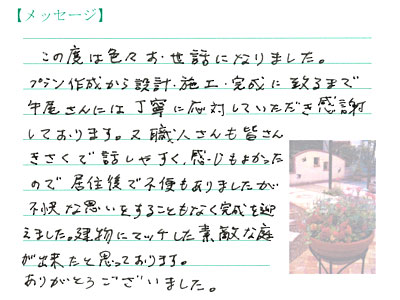 【メッセージ】
この度は色々お世話になりました。
プラン作成から設計・施工・完成に致るまで
牛尾さんには丁寧に応対していただき感謝
しております。又職人さんも皆さん
きさくで話しやすく、感じもよかった
ので居住後で不便もありましたが
不快な思いをすることもなく完成を迎
えました。建物にマッチした素敵な庭
が出来たと思っております。
ありがとうございました。